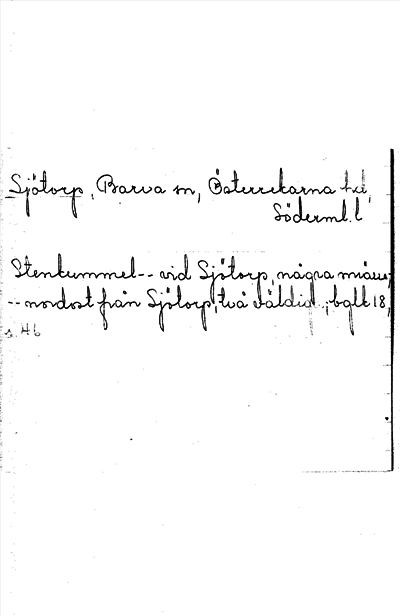 Sjötorp, Barva sn, Österrekarna hd,
Söderml. l
Stenkummel -- vid Sjötorp, några
-- nordost från Sjötorp, två väldig ; bglk 18,
s. 46